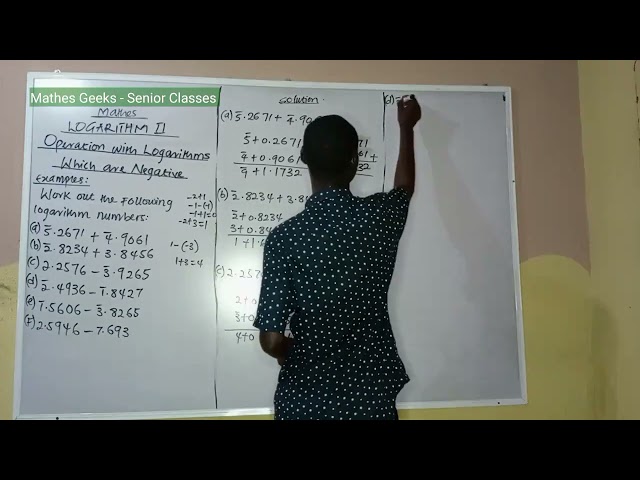 Mathes Geeks - Senior Classes
Mathes
LOGARITHM II
Operation with Logarithms
Which are Negative
Examples:
Work out the following
logarithm numbers:
(a) 5̄.2671 + 4̄.9061
(b) 2̄.8234 + 3.8456
(c) 2.2576 − 3̄.9265
(d) 2̄.4936 − 1̄.8427
(e) 1̄.5606 − 3̄.8265
(f) 2.5946 − 7.693
-2+1
-1-(-1)
-1+1=0
-2+3=1
1-(-3)
1+3=4
Solution.
(a) 5̄.2671 + 4̄.90
5̄+0.2671
4̄+0.9061
9̄+1.1732
(b) 2̄.8234 + 3.8
2̄+0.8234
3+0.84
1+1.
(c) 2.257
2+0
3̄+0
4+0
(d) =